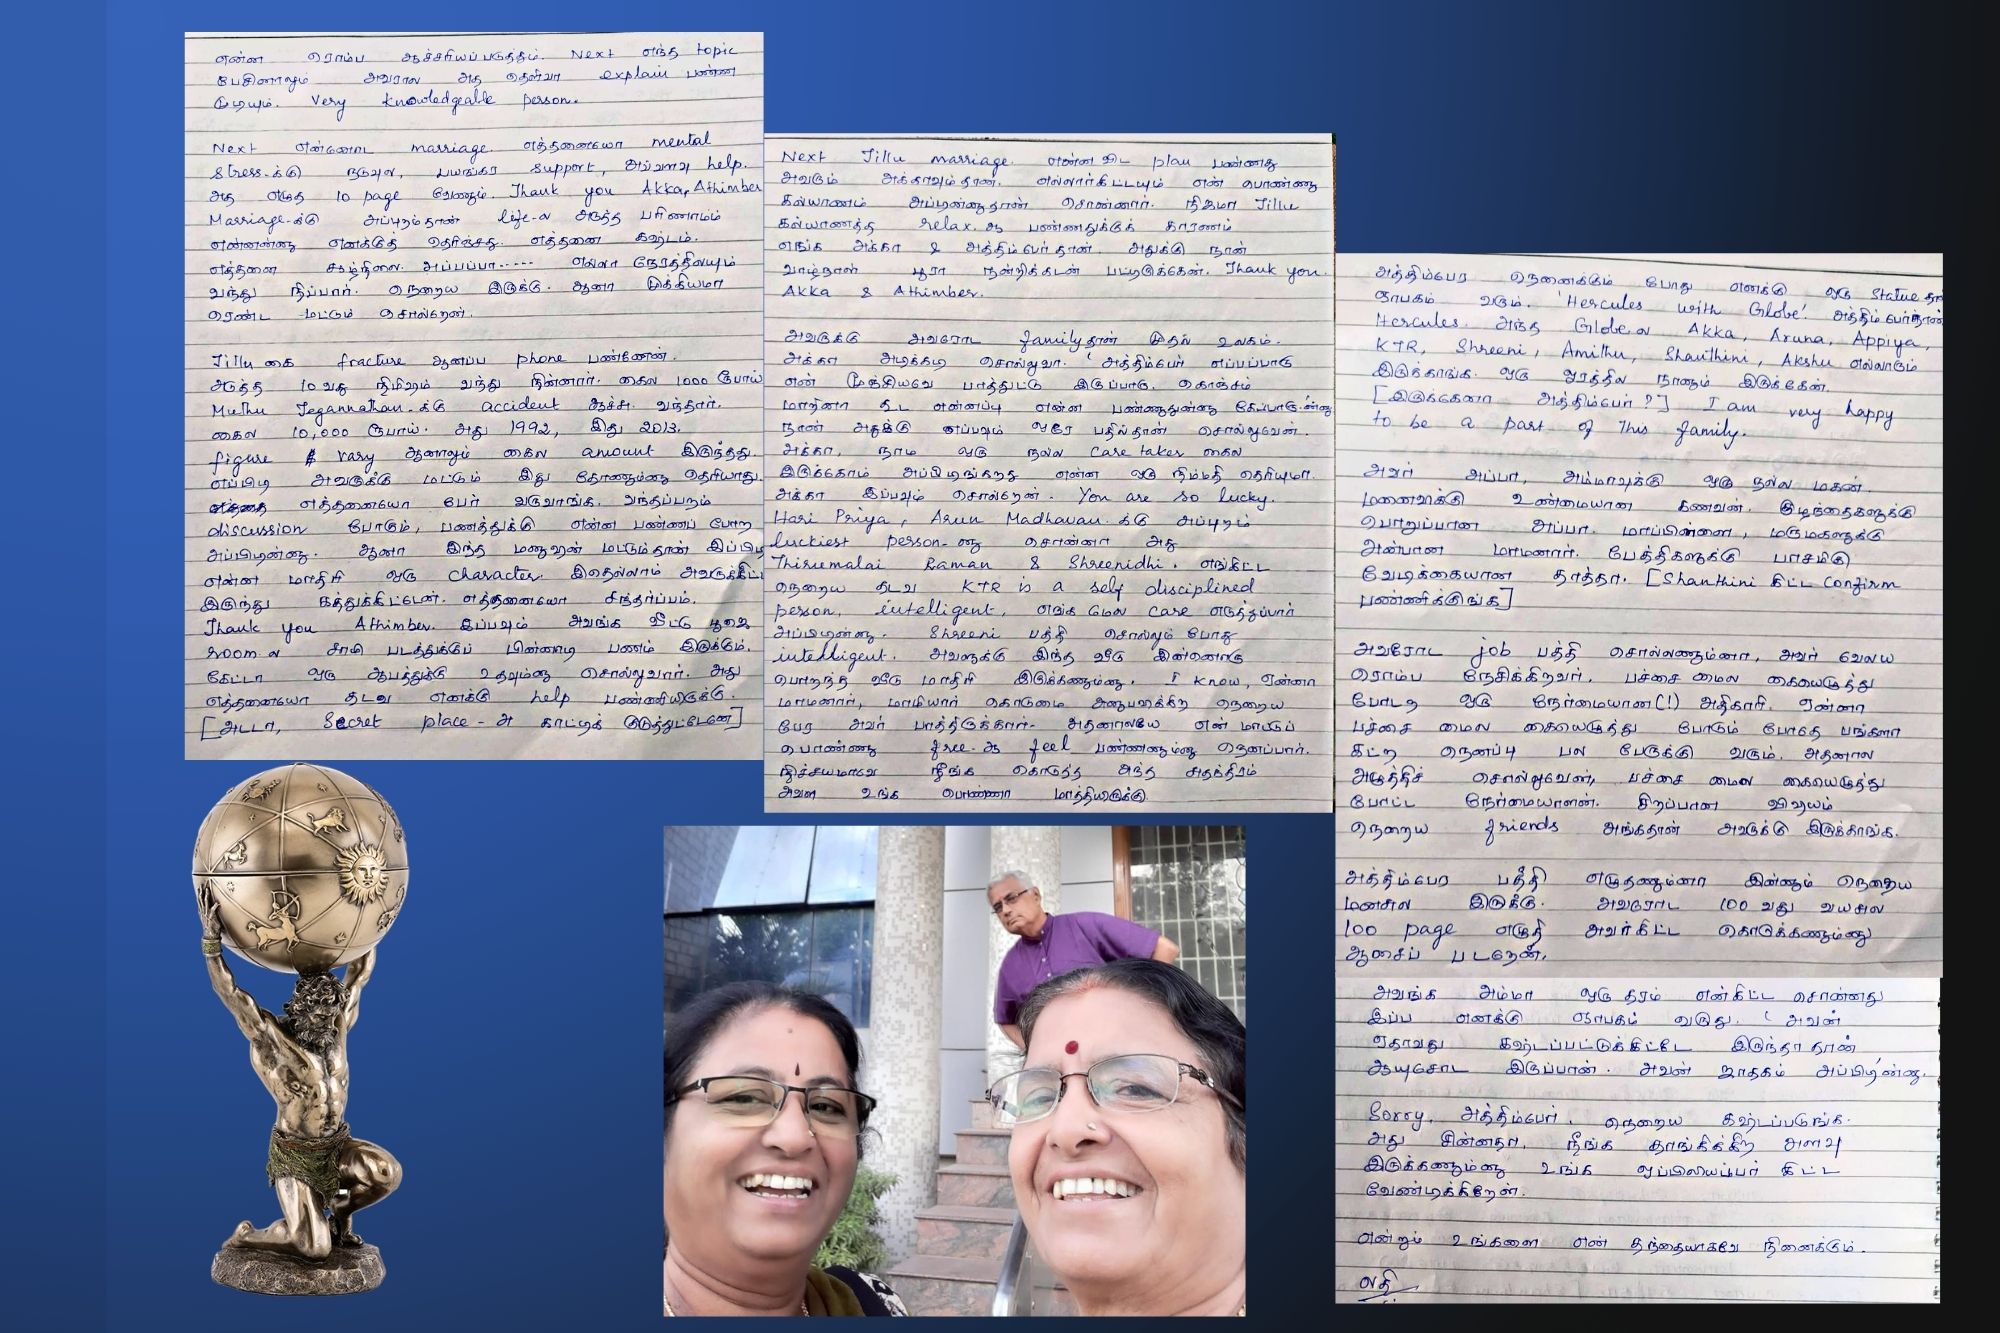 என்ன ரொம்ப ஆச்சரியப்படுத்தும். Next எந்த topic
பேசினாலும் அவரால அத தெளிவா explain பண்ண
முடியும். Very knowledgeable person.
Next என்னோட marriage. எத்தனையோ mental
Stress-க்கு நடுவுல, பயங்கர support, அவ்வளவு help.
அத எழுத 10 page வேணும். Thank you Akka, Athimber
Marriage-க்கு அப்புறம்தான் life-ல அடுத்த பரிணாமம்
என்னன்னு எனக்குத் தெரிஞ்சது. எத்தனை கஷ்டம்.
எத்தனை சூழ்நிலை. அப்பப்பா...... எல்லா நேரத்திலயும்
வந்து நிப்பார். நெறைய இருக்கு. ஆனா முக்கியமா
ரெண்ட மட்டும் சொல்றேன்.
Jillu கை fracture ஆனப்ப phone பண்ணேன்.
அடுத்த 10 வது நிமிஷம் வந்து நின்னார். கைல 1000 ரூபாய்
Muthu Jegannathan-க்கு accident ஆச்சு. வந்தார்.
கைல 10,000 ரூபாய். அது 1992, இது 2013.
figure vary ஆனாலும் கைல amount இருந்தது.
எப்பிடி அவருக்கு மட்டும் இது தோணும்னு தெரியாது.
எத்தனையோ பேர் வருவாங்க. வந்தப்பறம்
discussion போகும், பணத்துக்கு என்ன பண்ணப் போற
அப்பிடின்னு. ஆனா இந்த மனுஷன் மட்டும்தான் இப்பிடி
என்ன மாதிரி ஒரு character. இதெல்லாம் அவருக்கிட்ட
இருந்து கத்துக்கிட்டேன். எத்தனையோ சந்தர்ப்பம்.
Thank you Athimber. இப்பவும் அவங்க வீட்டு பூஜை
room ல சாமி படத்துக்குப் பின்னாடி பணம் இருக்கும்.
கேட்டா ஒரு ஆபத்துக்கு உதவும்னு சொல்லுவார். அது
எத்தனையோ தடவ எனக்கு help பண்ணியிருக்கு.
[அடடா, Secret place - அ காட்டிக் குடுத்துட்டேனே]
Next Jillu marriage. என்ன விட plan பண்ணது
அவரும் அக்காவும்தான். எல்லார்கிட்டயும் என் பொண்ணு
கல்யாணம் அப்டின்னுதான் சொன்னார். நிஜமா Jillu
கல்யாணத்த relax. ஆ பண்ணதுக்குக் காரணம்
எங்க அக்கா & அத்திம்பேர் தான். அதுக்கு நான்
வாழ்நாள் பூரா நன்றிக்கடன் பட்டிருக்கேன். Thank you.
Akka & Athimber.
அவருக்கு அவரோட family தான் முதல் உலகம்.
அக்கா அடிக்கடி சொல்லுவா. 'அத்திம்பேர் எப்பப்பாரு
என் மூஞ்சியவே பாத்துட்டு இருப்பாரு. கொஞ்சம்
மாறினா கூட என்னப்டி என்ன பண்ணுதுன்னு கேப்பாரு'ன்னு
நான் அதுக்கு எப்பவும் ஒரே பதில்தான் சொல்லுவேன்.
அக்கா, நாம ஒரு நல்ல care taker கைல
இருக்கோம் அப்பிடிங்கறத என்ன ஒரு நிம்மதி தெரியுமா.
அக்கா இப்பவும் சொல்றேன். You are so lucky.
Hari Priya, Arun Madhavan-க்கு அப்புறம்
luckiest person-னு சொன்னா அது
Thirumalai Raman & Shreenidhi. எங்கிட்ட
நெறைய தடவ KTR is a self disciplined
person, intelligent, எங்க மேல care எடுத்துப்பார்
அப்பிடின்னு. Shreeni பத்தி சொல்லும் போது
intelligent. அவளுக்கு இந்த வீடு இன்னொரு
பொறந்த வீடு மாதிரி இருக்கணும்னு. I know, ஏன்னா
மாமனார், மாமியார் கொடுமை அனுபவிக்கிற நெறைய
பேர அவர் பாத்திருக்கார். அதனாலயே என் மாட்டுப்
பொண்ணு free-ஆ feel பண்ணணும்னு நெனப்பார்.
நிச்சயமாவே நீங்க கொடுத்த அந்த சுதந்திரம்
அவள உங்க பொண்ணா மாத்தியிருக்கு.
அத்திம்பேர நெனைக்கும் போது எனக்கு ஒரு Statue தான்
ஞாபகம் வரும். 'Hercules with Globe'. அத்திம்பேர்தான்
Hercules. அந்த Globe ல Akka, Aruna, Appiya,
KTR, Shreeni, Amithu, Shanthini, Akshu எல்லாரும்
இருக்காங்க. ஒரு ஓரத்தில நானும் இருக்கேன்.
[இருக்கேனா அத்திம்பேர்?] I am very happy
to be a part of This family.
அவர் அப்பா, அம்மாவுக்கு ஒரு நல்ல மகன்.
மனைவிக்கு உண்மையான கணவன். குழந்தைகளுக்கு
பொறுப்பான அப்பா. மாப்பிள்ளை, மருமகளுக்கு
அன்பான மாமனார். பேத்திகளுக்கு பாசமிகு
வேடிக்கையான தாத்தா. [Shanthini கிட்ட confirm
பண்ணிக்குங்க]
அவரோட job பத்தி சொல்லணும்னா, அவர் வேலய
ரொம்ப நேசிக்கிறவர். பச்சை மைல கையெழுத்து
போடற ஒரு நேர்மையான(!) அதிகாரி. ஏன்னா
பச்சை மைல கையெழுத்து போடும் போதே பங்களா
கட்ற நெனப்பு பல பேருக்கு வரும். அதனால
அழுத்திச் சொல்லுவேன், பச்சை மைல கையெழுத்து
போட்ட நேர்மையாளன். சிறப்பான விஷயம்
நெறைய friends அங்கதான் அவருக்கு இருக்காங்க.
அத்திம்பேர பத்தி எழுதணும்னா இன்னும் நெறைய
மனசுல இருக்கு. அவரோட 100 வது வயசுல
100 page எழுதி அவர்கிட்ட கொடுக்கணும்னு
ஆசைப் படறேன்.
அவங்க அம்மா ஒரு தரம் என்கிட்ட சொன்னது
இப்ப எனக்கு ஞாபகம் வருது. 'அவன்
ஏதாவது கஷ்டப்பட்டுக்கிட்டே இருந்தா தான்
ஆயுசோட இருப்பான். அவன் ஜாதகம் அப்பிடி'ன்னு.
Sorry, அத்திம்பேர். நெறைய கஷ்டப்படுங்க.
அது சின்னதா, நீங்க தாங்கிக்கிற அளவு
இருக்கணும்னு உங்க ஒப்பிலியப்பர் கிட்ட
வேண்டிக்கிறேன்.
என்றும் உங்களை என் தந்தையாகவே நினைக்கும்.